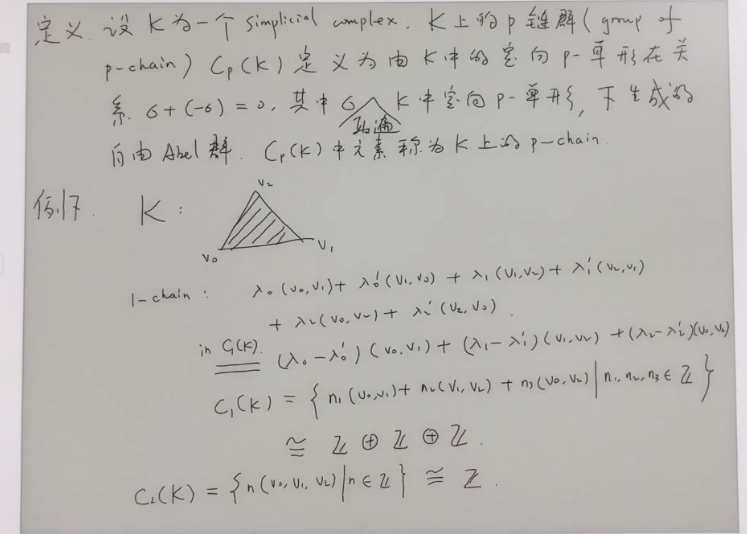 定义 设 K 为一个 simplicial complex. K 上的 p 链群 (group of
p-chain) Cp(K) 定义为由 K 中的定向 p-单形在关
系 σ+(-σ)=0, 其中 σ 取遍 K 中定向 p-单形, 下生成的
自由 Abel 群. Cp(K) 中元素称为 K 上的 p-chain.
例7. K:
v₂
v₀ v₁
1-chain: λ₀(v₀,v₁)+λ₀'(v₁,v₀)+λ₁(v₁,v₂)+λ₁'(v₂,v₁)
+λ₂(v₀,v₂)+λ₂'(v₂,v₀).
in C₁(K). (λ₀-λ₀')(v₀,v₁)+(λ₁-λ₁')(v₁,v₂)+(λ₂-λ₂')(v₀,v₂)
C₁(K)={n₁(v₀,v₁)+n₂(v₁,v₂)+n₃(v₀,v₂)|n₁,n₂,n₃∈ℤ}
≅ ℤ⊕ℤ⊕ℤ.
C₂(K)={n(v₀,v₁,v₂)|n∈ℤ}≅ℤ.